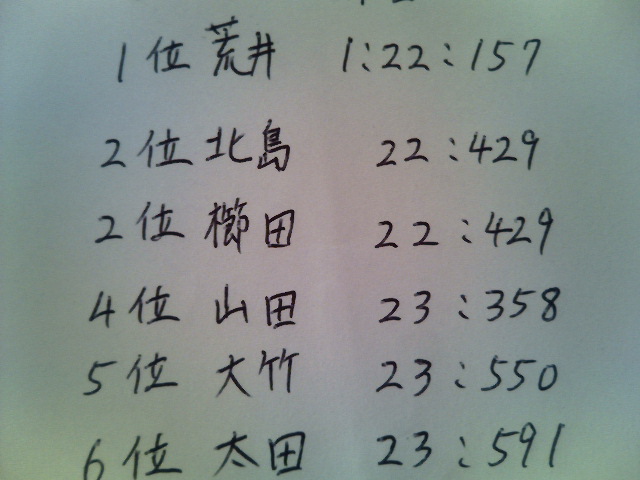 1位 荒井 1:22:157
2位 北島 22:429
2位 櫛田 22:429
4位 山田 23:358
5位 大竹 23:550
6位 太田 23:591